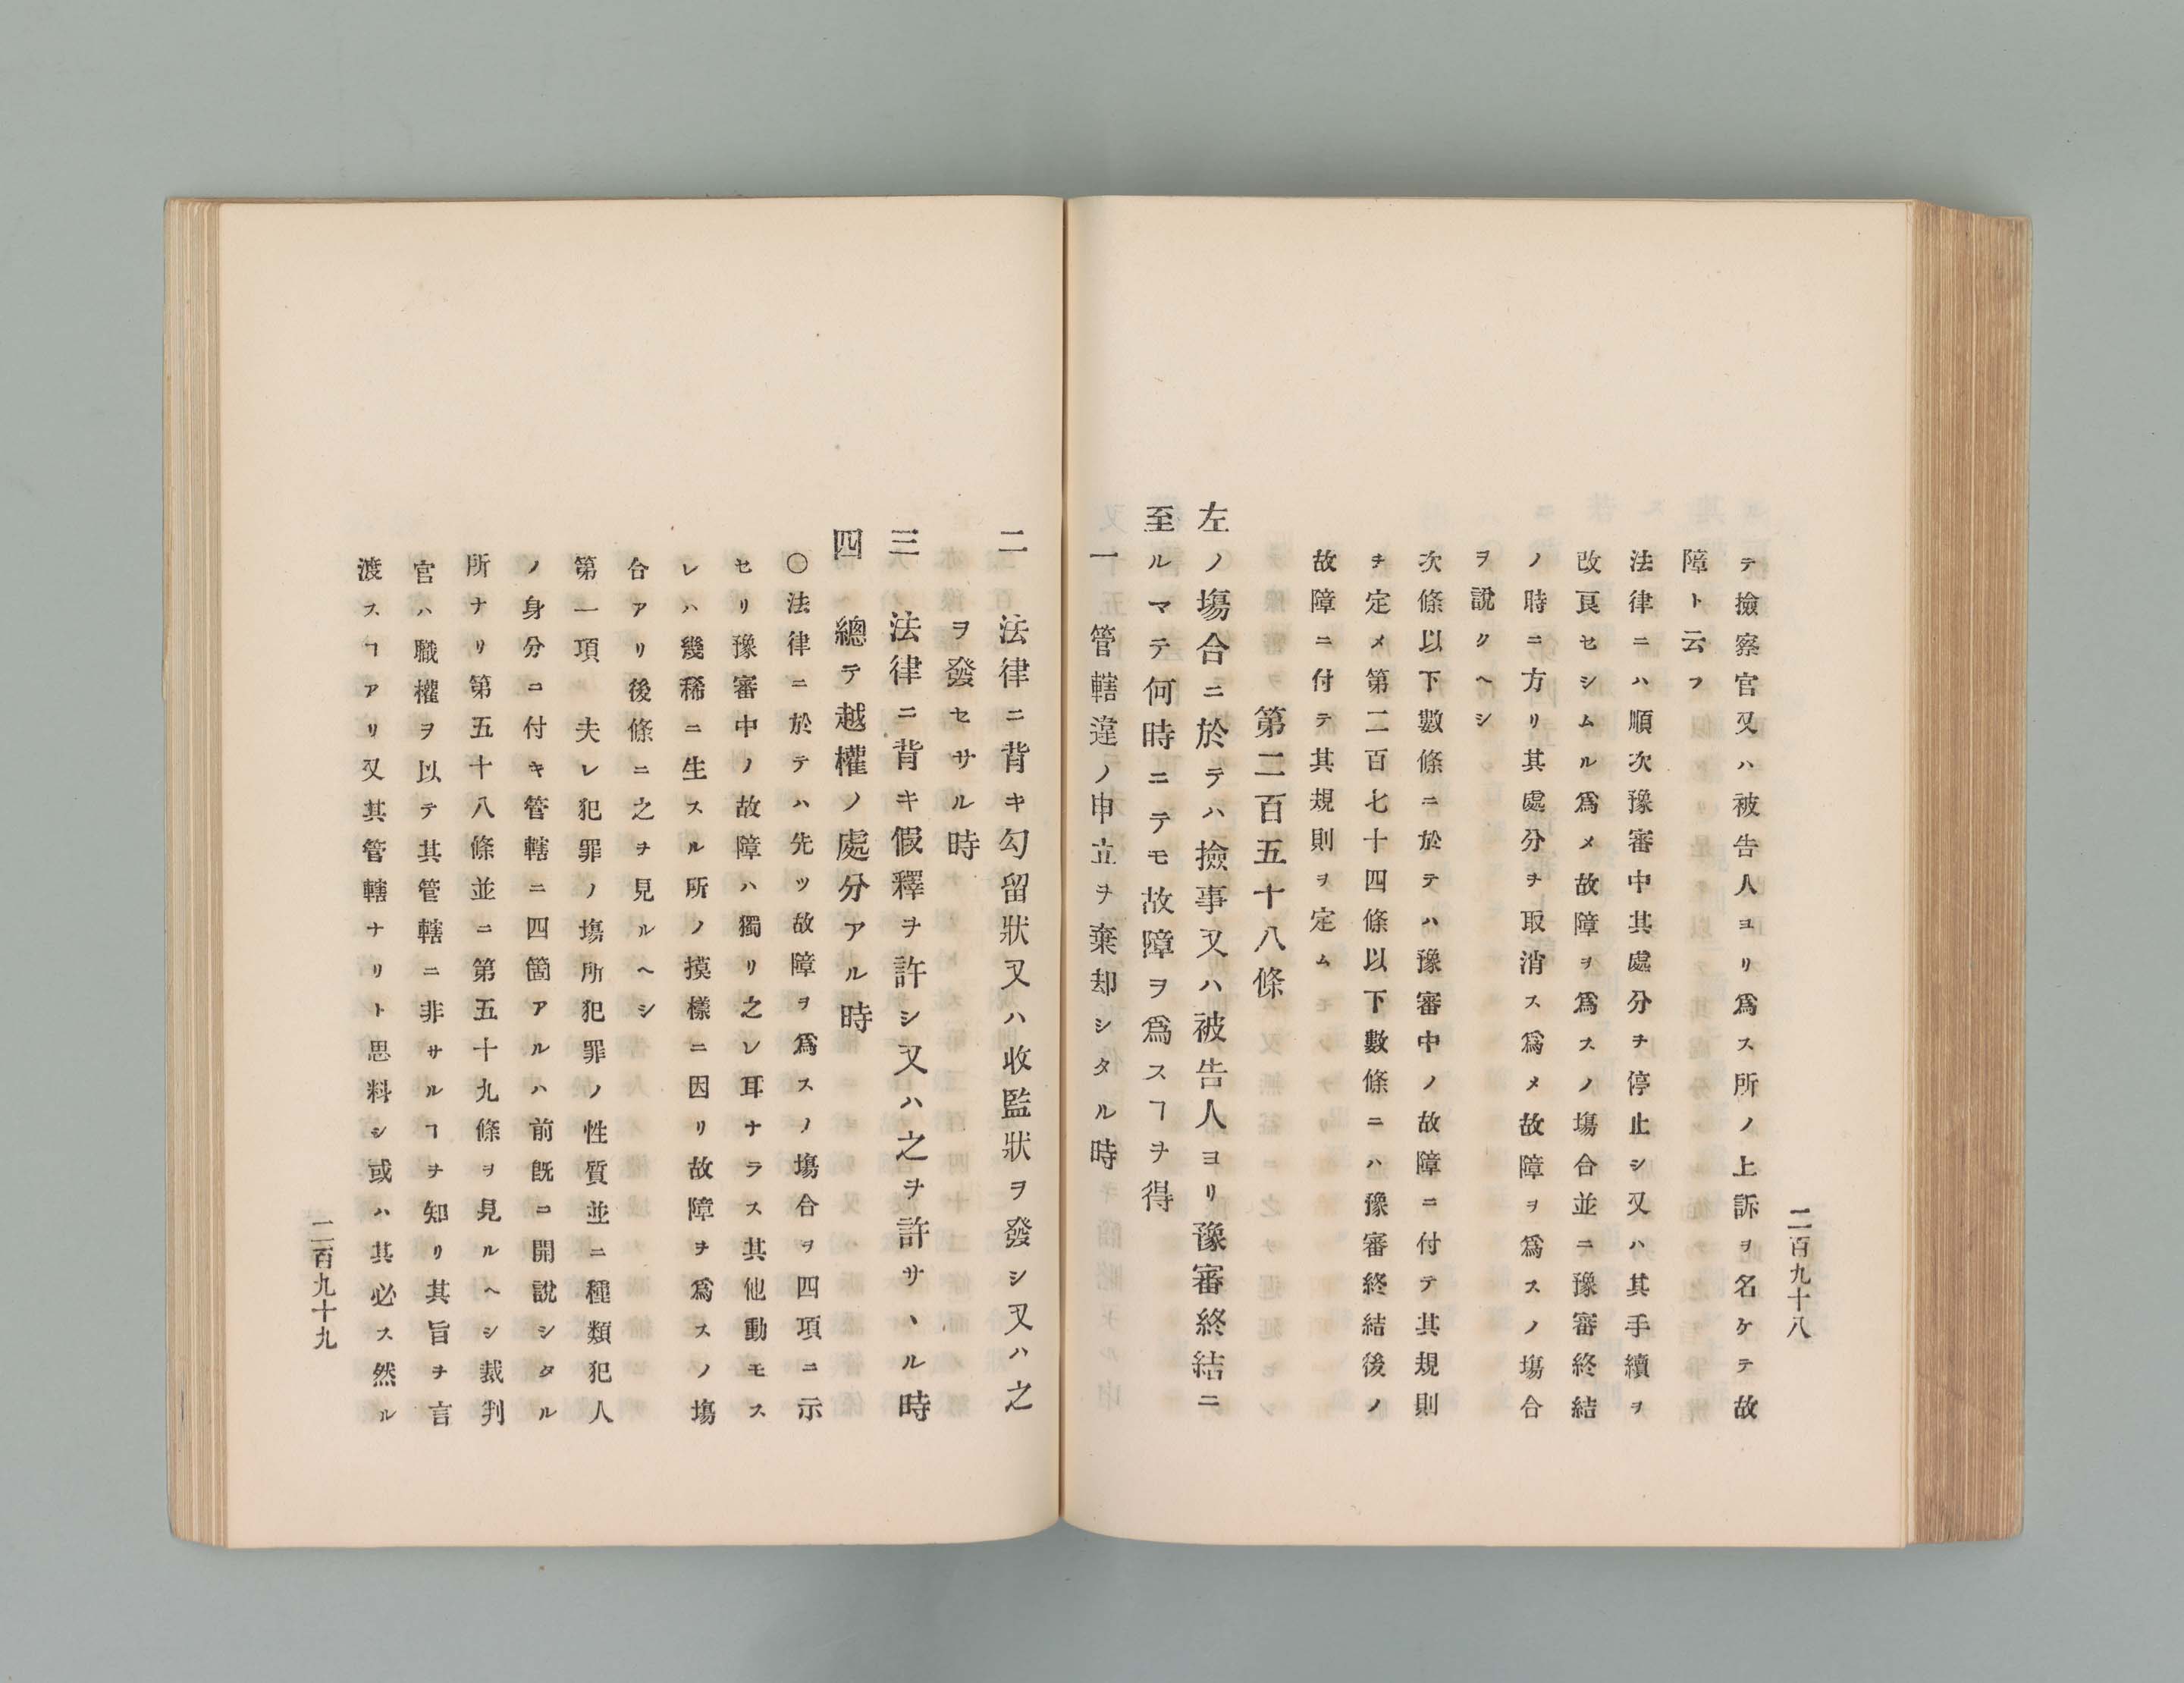 二百九十八
テ撿察官又ハ被告人ヨリ爲ス所ノ上訴ヲ名ケテ故
障ト云フ
法律ニハ順次豫審中其處分ヲ停止シ又ハ其手續ヲ
改良セシムル爲メ故障ヲ爲スノ塲合並ニ豫審終結
ノ時ニ方リ其處分ヲ取消ス爲メ故障ヲ爲スノ塲合
ヲ說クヘシ
次條以下數條ニ於テハ豫審中ノ故障ニ付テ其規則
ヲ定メ第二百七十四條以下數條ニハ豫審終結後ノ
故障ニ付テ其規則ヲ定ム
第二百五十八條
左ノ塲合ニ於テハ撿事又ハ被告人ヨリ豫審終結ニ
至ルマテ何時ニテモ故障ヲ爲スヿヲ得
一 管轄違ノ申立ヲ棄却シタル時
二 法律ニ背キ勾留狀又ハ收監狀ヲ發シ又ハ之
ヲ發セサル時
三 法律ニ背キ假釋ヲ許シ又ハ之ヲ許サヽル時
四 總テ越權ノ處分アル時
〇法律ニ於テハ先ツ故障ヲ爲スノ塲合ヲ四項ニ示
セリ豫審中ノ故障ハ獨リ之レ耳ナラス其他動モス
レハ幾稀ニ生スル所ノ摸樣ニ因リ故障ヲ爲スノ塲
合アリ後條ニ之ヲ見ルヘシ
第一項 夫レ犯罪ノ塲所犯罪ノ性質並ニ種類犯人
ノ身分ニ付キ管轄ニ四箇アルハ前旣ニ開說シタル
所ナリ第五十八條並ニ第五十九條ヲ見ルヘシ裁判
官ハ職權ヲ以テ其管轄ニ非サルヿヲ知リ其旨ヲ言
渡スヿアリ又其管轄ナリト思料シ或ハ其必ス然ル
二百九十九